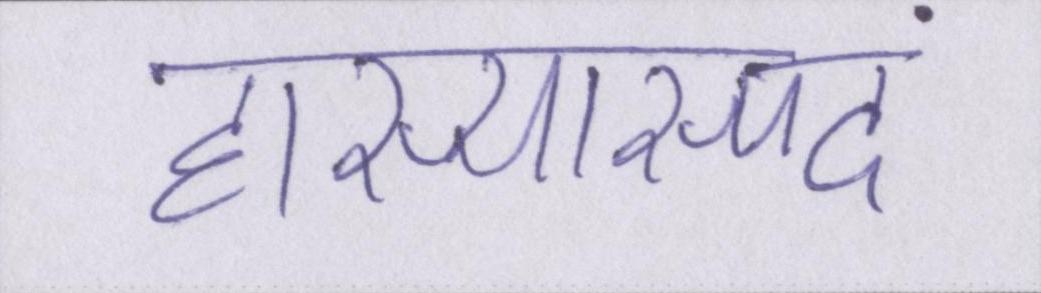 हास्यास्पदं